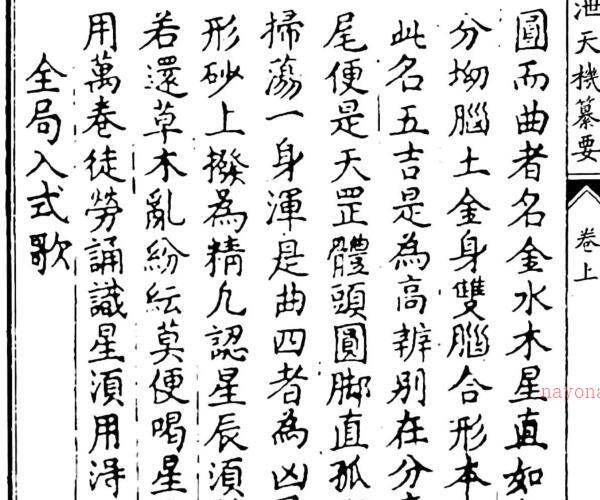 泄天機纂要
卷上
圓而曲者名金水木星直如
分坳腦土金身雙腦合形本
此名五吉是為高辨别在分
尾便是天罡體頭圓脚直孤
掃蕩一身渾是曲四者為凶
形砂上撥為精凡認星辰須
若還草木亂紛紜莫便喝星
用萬卷徒勞誦識星須用得
全局入式歌
nayona